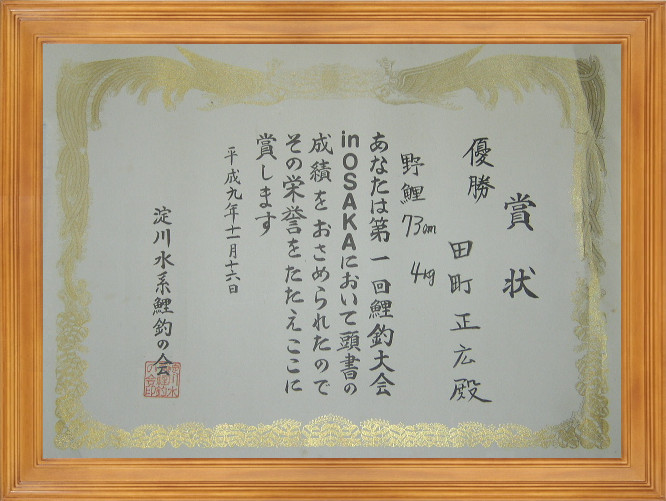 賞状
優勝
田町正広殿
野鯉 73cm 4kg
あなたは第一回鯉釣大会
inOSAKAにおいて頭書の
成績をおさめられたので
その栄誉をたたえここに
賞します
平成九年十一月十六日
淀川水系鯉釣の会